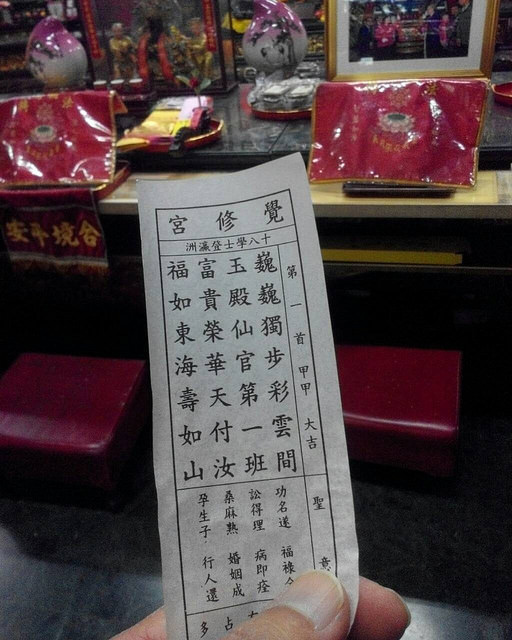 覺修宮
十八學士登瀛洲
第一首 甲甲 大吉
巍巍獨步彩雲間
玉殿仙官第一班
富貴榮華天付汝
福如東海壽如山
聖意
功名遂 福祿全
訟得理 病即痊
桑麻熟 婚姻成
孕生子 行人還
占
多
合境平安